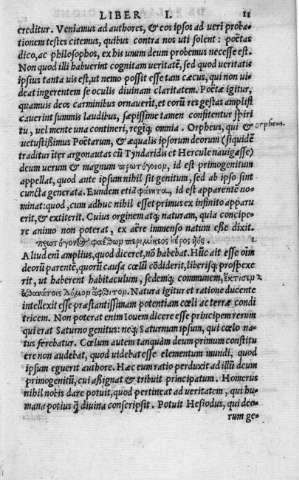 LIBER I. 11
creditur. Veniamus ad authores, & eos ipsos ad ueri probationem
testes citemus, quibus contra nos uti solent: poëtas
dico, ac philosophos, ex his unum deum probemus necesse est.
Non quod illi habuerint cognitam ueritatẽ, sed quod ueritatis
ipsius tanta uis est, ut nemo possit esse tam cæcus, qui non uideat
ingerentem se oculis diuinam claritatem. Poëtæ igitur,
quamuis deos carminibus ornauerit, et eorũ res gestas amplificauerint
summis laudibus, sæpissime tamen confitentur spiritu,
uel mente una contineri, regiq; omnia. Orpheus, qui &
Orpheus.
uetustissimus Poëtarum, & æqualis ipsorum deorum (siquidẽ
traditur iter argonautas cũ Tyndaridis et Hercule nauigasse)
deum uerum & magnum πρωτόγονον, id est primogenitum
appellat, quod ante ipsum nihil sit genitum, sed ab ipso sint
cuncta generata. Eundem etiã φάνητα, id est apparentẽ nominat:
quod, cum adhuc nihil esset primus ex infinito apparuerit,
& extiterit. Cuius originem atq; naturam, quia concipere
animo non poterat, ex aëre immenso natum esse dixit.
Aliud enĩ amplius, quod diceret, nõ habebat. Hũc ait esse oĩm
deorũ parentẽ, quorũ causa cœlũ cõdiderit, liberisq; prospexerit,
ut haberent habitaculum, sedemq; communem,
Natura igitur et ratione ducente
intellexit esse præstantissimam potentiam cœli ac terræ conditricem.
Non poterat enim Iouem dicere esse principem rerum
qui erat Saturno genitus: neq; Saturnum ipsum, qui cœlo natus
ferebatur. Cœlum autem tanquàm deum primum constituere
non audebat, quod uidebat esse elementum mundi, quod
ipsum eguerit authore. Hæc eum ratio perduxit ad illũ deum
primogenitũ, cui aßignat & tribuit principatum. Homerus
nihil nobis dare potuit, quod pertineat ad ueritatem, qui humana
potius q̃ diuina conscripsit. Potuit Hesiodus, qui deorum
ge-